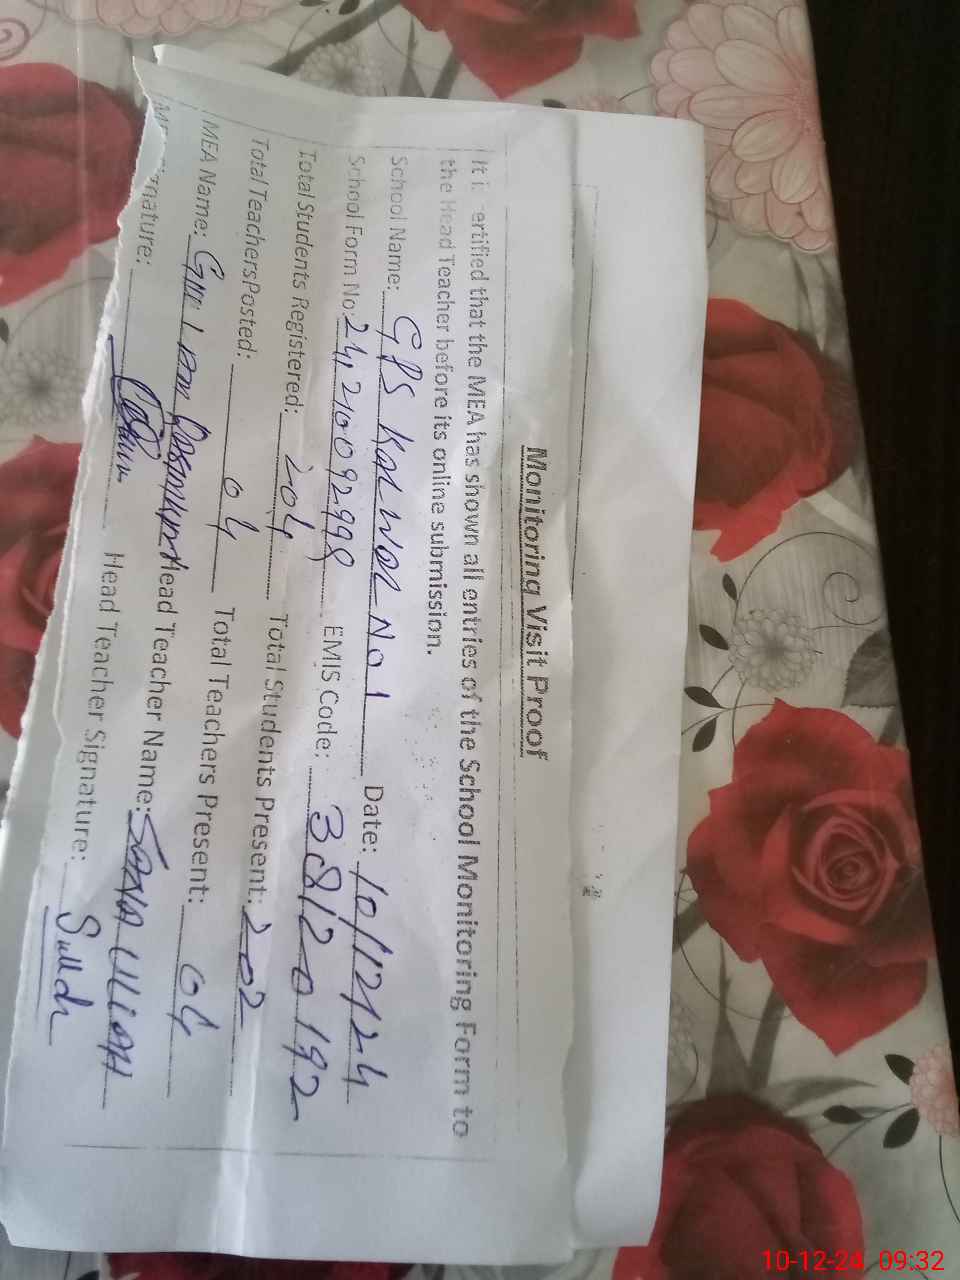 Monitoring Visit Proof
It i ertified that the MEA has shown all entries of the School Monitoring Form to
the Head Teacher before its online submission.
School Name: GPS Kot wal No 1 Date: 10/12/24
School Form No: EMIS Code: 38120192
Total Students Registered: 204 Total Students Present: 202
Total TeachersPosted: 04 Total Teachers Present: 04
MEA Name: Head Teacher Name: ULLAH
gnature: Head Teacher Signature:
10-12-24 09:32